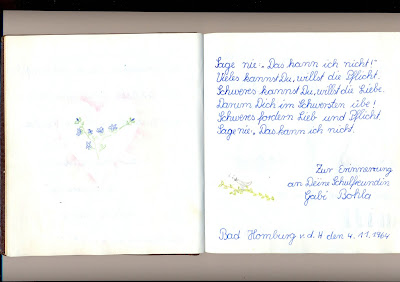 Sage nie: „Das kann ich nicht!"
Vieles kannst Du, willst die Pflicht.
Schweres kannst Du, willst die Liebe.
Darum Dich im Schwersten übe!
Schweres fordern Lieb und Pflicht
Sage nie: „Das kann ich nicht.
Zur Erinnerung
an Deine Schulfreundin
Gabi Bohla
Bad Homburg v. d. H den 4. 11. 1964